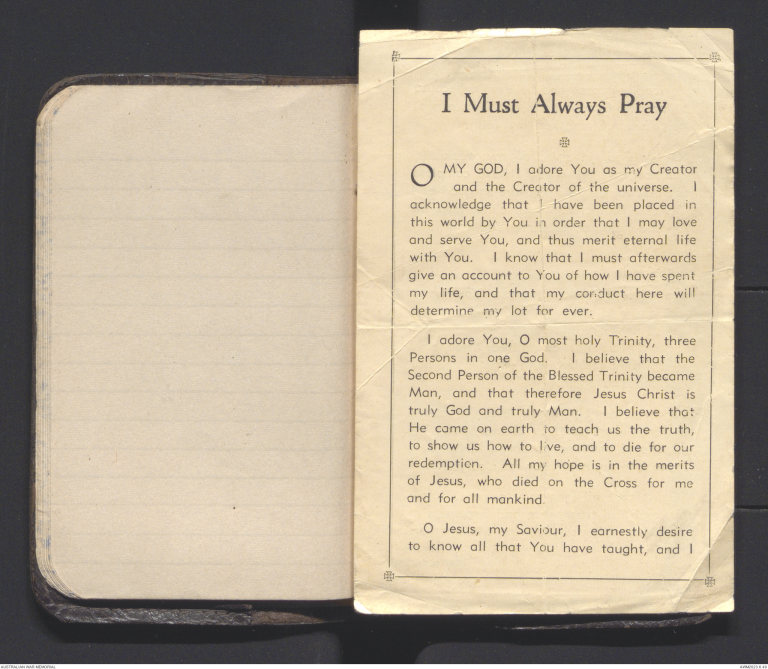 I Must Always Pray
O MY GOD, I adore You as my Creator
and the Creator of the universe. I
acknowledge that I have been placed in
this world by You in order that I may love
and serve You, and thus merit eternal life
with You. I know that I must afterwards
give an account to You of how I have spent
my life, and that my conduct here will
determine my lot for ever.
I adore You, O most holy Trinity, three
Persons in one God. I believe that the
Second Person of the Blessed Trinity became
Man, and that therefore Jesus Christ is
truly God and truly Man. I believe that
He came on earth to teach us the truth,
to show us how to live, and to die for our
redemption. All my hope is in the merits
of Jesus, who died on the Cross for me
and for all mankind.
O Jesus, my Saviour, I earnestly desire
to know all that You have taught, and I
AUSTRALIAN WAR MEMORIAL